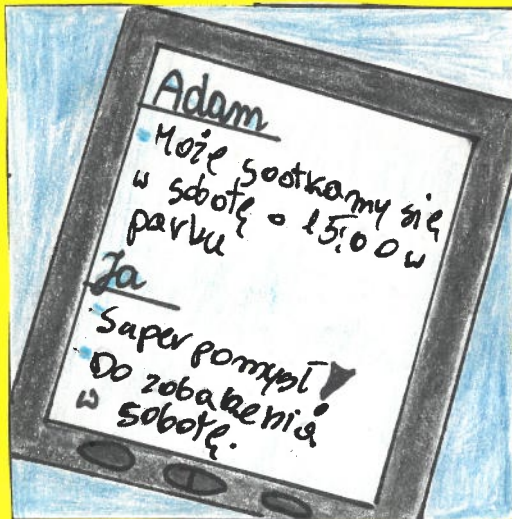 Adam
Może sootkamy się
w sobotę o 15:00 w
parku
Ja
Super pomysł
Do zobaczenia
w sobotę.